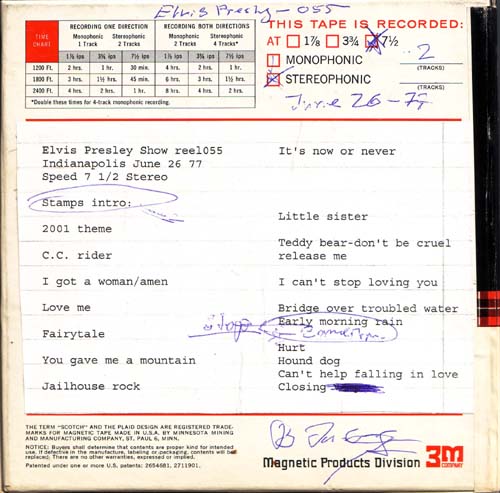 Elvis Presley - 055
TIME CHART
RECORDING ONE DIRECTION
RECORDING BOTH DIRECTIONS
Monophonic 1 Track
Stereophonic 2 Tracks
Monophonic 2 Tracks
Stereophonic 4 Tracks*
1⅞ ips 3¾ ips 7½ ips 1⅞ ips 3¾ ips 7½ ips
1200 Ft. 2 hrs. 1 hr. 30 min. 4 hrs. 2 hrs. 1 hr.
1800 Ft. 3 hrs. 1½ hrs. 45 min. 6 hrs. 3 hrs. 1½ hrs.
2400 Ft. 4 hrs. 2 hrs. 1 hr. 8 hrs. 4 hrs. 2 hrs.
*Double these times for 4-track monophonic recording.
THIS TAPE IS RECORDED:
AT 1⅞ 3¾ 7½
MONOPHONIC 2
(TRACKS)
STEREOPHONIC
(TRACKS)
June 26-77
Elvis Presley Show reel055
Indianapolis June 26 77
Speed 7 1/2 Stereo
Stamps intro:
2001 theme
C.C. rider
I got a woman/amen
Love me
Fairytale
You gave me a mountain
Jailhouse rock
It's now or never
Little sister
Teddy bear-don't be cruel
release me
I can't stop loving you
Bridge over troubled water
Early morning rain
Hurt
Hound dog
Can't help falling in love
Closing
THE TERM "SCOTCH" AND THE PLAID DESIGN ARE REGISTERED TRADE-
MARKS FOR MAGNETIC TAPE MADE IN U.S.A. BY MINNESOTA MINING
AND MANUFACTURING COMPANY, ST. PAUL 6, MINN.
NOTICE: Buyers shall determine that contents are proper kind for intended
use. If defective in the manufacture, labeling or packaging, contents will be
replaced. There are no other warranties, expressed or implied.
Patented under one or more U.S. patents: 2654681, 2711901.
Magnetic Products Division 3M
COMPANY